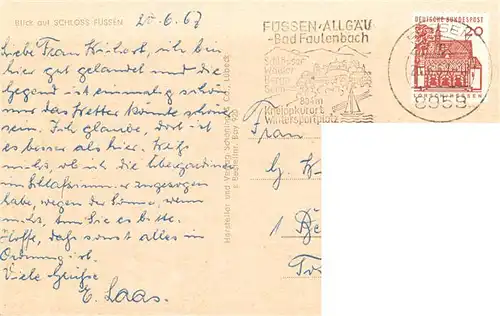 Blick auf SCHLOSS FÜSSEN
20.6.67
Liebe Frau ich bin
hier gut gelandet und die
Gegend ist einmalig schön
nur das Wetter könnte schöner
sein. Ich glaube, dort ist
es besser als hier. Weiß
nicht, ob ich die Übergardinen
im Schlafzimmer zugezogen
habe, wegen der Sonne, wenn
nicht, tun Sie es bitte.
Hoffe, daß sonst alles in
Ordnung ist.
Viele Grüße
E. Laas.
Hersteller und Verlag: Schöning & Co., Lübeck
FÜSSEN·ALLGÄU
-Bad Faulenbach
Schlösser
Wälder
Berge
Seen
804m
Kneippkurort
Wintersportplatz
FÜSSEN
8958
DEUTSCHE BUNDESPOST
20
LORSCH/HESSEN
Frau
G. K
1 Be